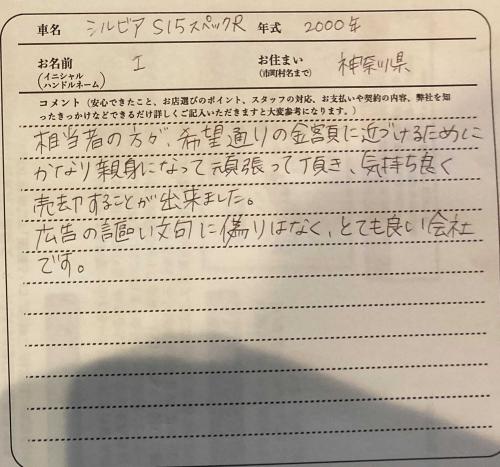 車名 シルビア S15スペックR 年式 2000年
お名前 (イニシャル ハンドルネーム) I お住まい (市町村名まで) 神奈川県
コメント(安心できたこと、お店選びのポイント、スタッフの対応、お支払いや契約の内容、弊社を知
ったきっかけなどできるだけ詳しくご記入いただきますと大変参考になります。)
相当者の方が、希望通りの金額に近づけるために
かなり親身になって頑張って頂き、気持ち良く
売却することが出来ました。
広告の謳い文句に偽りはなく、とても良い会社
です。